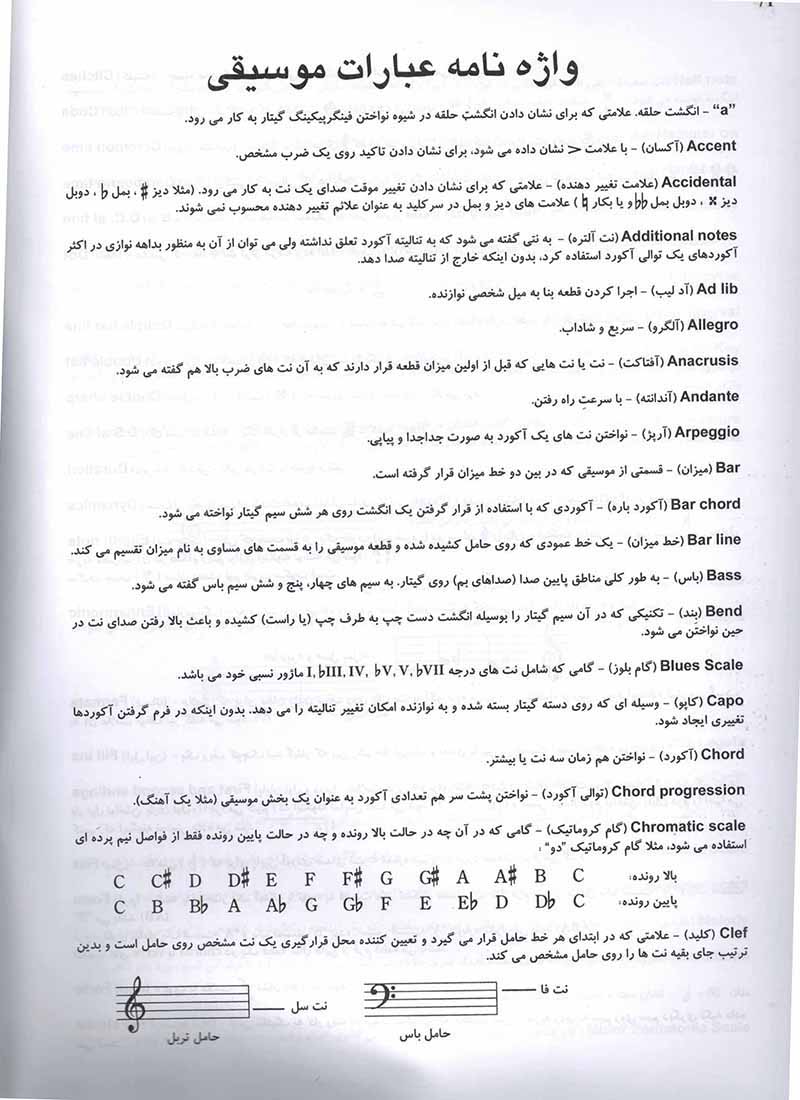 واژه نامه عبارات موسیقی
“a” – انگشت حلقه. علامتی که برای نشان دادن انگشت حلقه در شیوه نواختن فینگرپیکینگ گیتار به کار می رود.
Accent (آکسان) – با علامت > نشان داده می شود، برای نشان دادن تاکید روی یک ضرب مشخص.
Accidental (علامت تغییر دهنده) – علامتی که برای نشان دادن تغییر موقت صدای یک نت به کار می رود. (مثلا دیز ♯، بمل ♭، دوبل
دیز 𝄪 ، دوبل بمل ♭♭ و یا بکار ♮) علامت های دیز و بمل در سرکلید به عنوان علائم تغییر دهنده محسوب نمی شوند.
Additional notes (نت آلتره) – به نتی گفته می شود که به تنالیته آکورد تعلق نداشته ولی می توان از آن به منظور بداهه نوازی در اکثر
آکوردهای یک توالی آکورد استفاده کرد، بدون اینکه خارج از تنالیته صدا دهد.
Ad lib (آد لیب) – اجرا کردن قطعه بنا به میل شخصی نوازنده.
Allegro (آلگرو) – سریع و شاداب.
Anacrusis (آفتاکت) – نت یا نت هایی که قبل از اولین میزان قطعه قرار دارند که به آن نت های ضرب بالا هم گفته می شود.
Andante (آندانته) – با سرعتِ راه رفتن.
Arpeggio (آرپژ) – نواختن نت های یک آکورد به صورت جداجدا و پیاپی.
Bar (میزان) – قسمتی از موسیقی که در بین دو خط میزان قرار گرفته است.
Bar chord (آکورد باره) – آکوردی که با استفاده از قرار گرفتن یک انگشت روی هر شش سیم گیتار نواخته می شود.
Bar line (خط میزان) – یک خط عمودی که روی حامل کشیده شده و قطعه موسیقی را به قسمت های مساوی به نام میزان تقسیم می کند.
Bass (باس) – به طور کلی مناطق پایین صدا (صداهای بم) روی گیتار. به سیم های چهار، پنج و شش سیم باس گفته می شود.
Bend (بِند) – تکنیکی که در آن سیم گیتار را بوسیله انگشت دست چپ به طرف چپ (یا راست) کشیده و باعث بالا رفتن صدای نت در
حین نواختن می شود.
Blues Scale (گام بلوز) – گامی که شامل نت های درجه I, ♭III, IV, ♭V, V, ♭VII ماژور نسبی خود می باشد.
Capo (کاپو) – وسیله ای که روی دسته گیتار بسته شده و به نوازنده امکان تغییر تنالیته را می دهد. بدون اینکه در فرم گرفتن آکوردها
تغییری ایجاد شود.
Chord (آکورد) – نواختن هم زمان سه نت یا بیشتر.
Chord progression (توالی آکورد) – نواختن پشت سر هم تعدادی آکورد به عنوان یک بخش موسیقی (مثلا یک آهنگ).
Chromatic scale (گام کروماتیک) – گامی که در آن چه در حالت بالا رونده و چه در حالت پایین رونده فقط از فواصل نیم پرده ای
استفاده می شود، مثلا گام کروماتیک “دو” :
بالا رونده: C C♯ D D♯ E F F♯ G G♯ A A♯ B C
پایین رونده: C B B♭ A A♭ G G♭ F E E♭ D D♭ C
Clef (کلید) – علامتی که در ابتدای هر خط حامل قرار می گیرد و تعیین کننده محل قرارگیری یک نت مشخص روی حامل است و بدین
ترتیب جای بقیه نت ها را روی حامل مشخص می کند.
نت فا
نت سل
حامل باس
حامل تربل